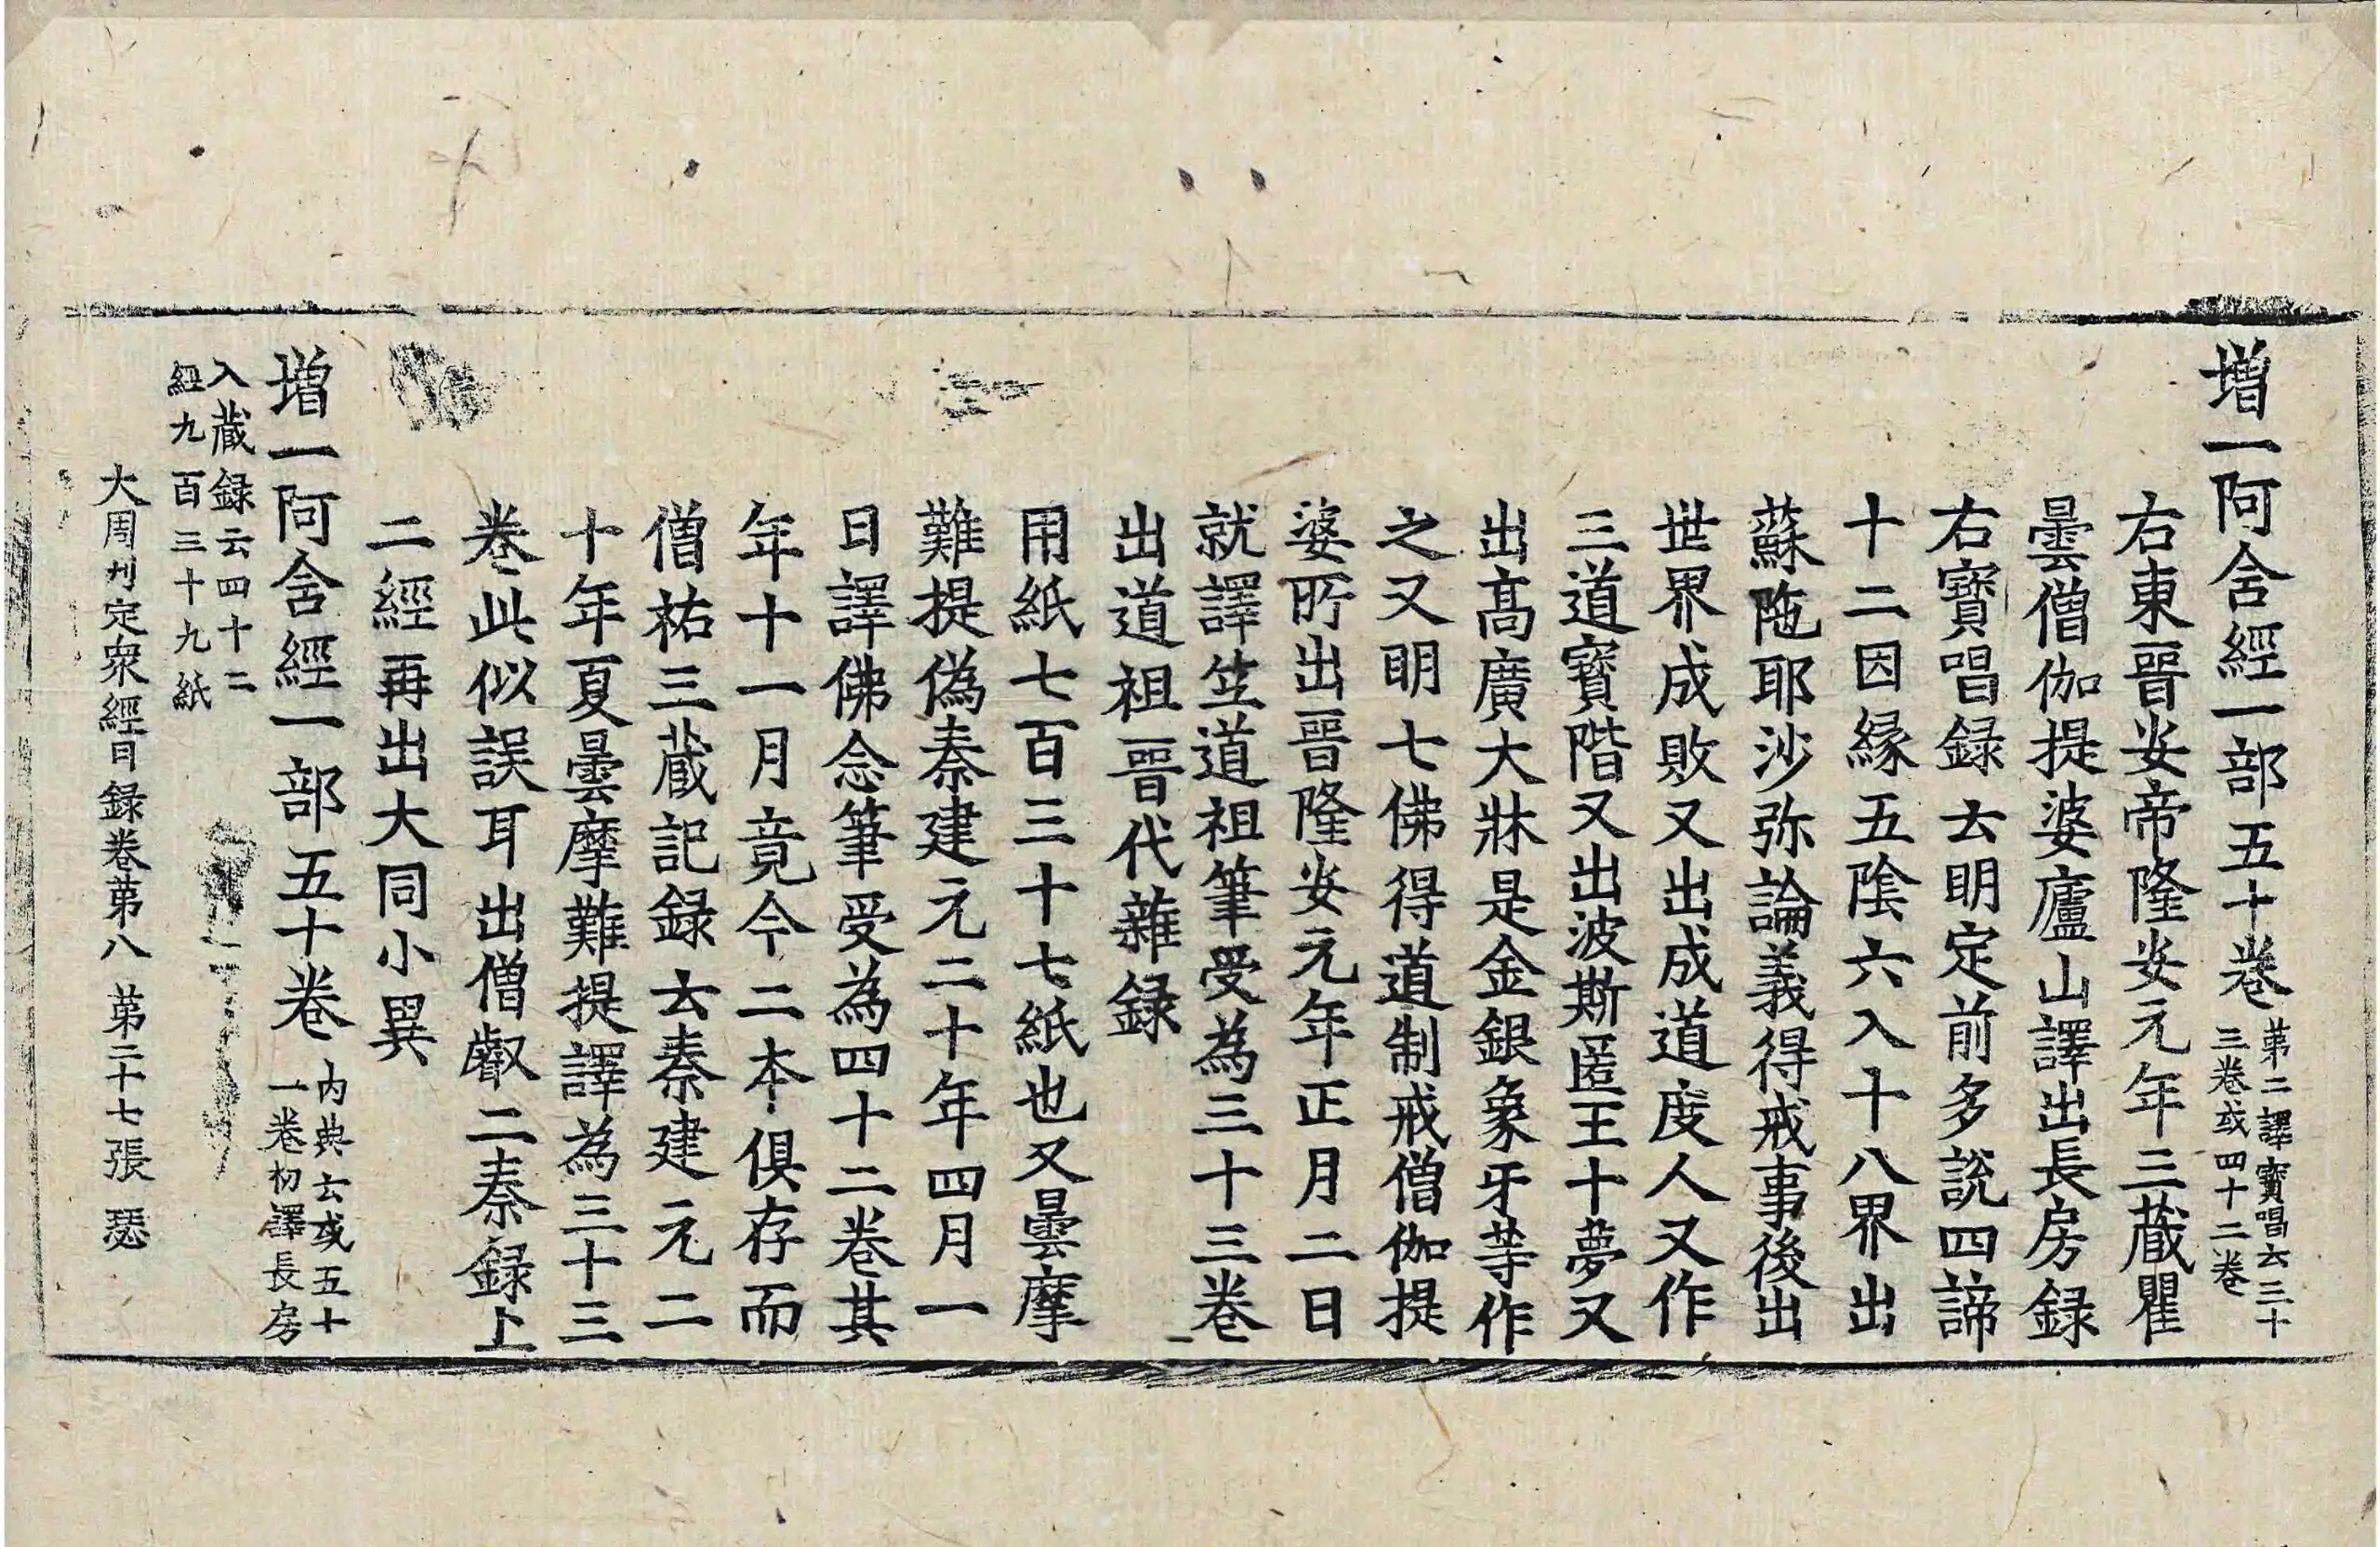 増一阿含經一部五十卷第二譯寶唱云三十三卷或四十二卷
右東晉安帝隆安元年三藏瞿
曇僧伽提婆廬山譯出長房録
右寶唱録云明定前多說四諦
十二因縁五隂六入十八界出
蘇陁耶沙弥論義得戒事後出
世界成敗又出成道度人又作
三道寳階又出波斯匿王十夢又
出髙廣大牀是金銀象牙等作
之又明七佛得道制戒僧伽提
婆所出晉隆安元年正月二日
就譯笁道祖筆受為三十三卷
出道祖晉代雜録
用紙七百三十七紙也又曇摩
難提偽秦建元二十年四月一
日譯佛念筆受為四十二卷其
年十一月竟今二本俱存而
僧祐三蔵記録云秦建元二
十年夏曇摩難提譯為三十三
卷此似誤耳出僧叡二秦録上
二經再出大同小異
増一阿含經一部五十卷内典云或五十一卷初譯長房
入蔵録云四十二
經九百三十九紙
大周刋定衆經目録卷苐八 苐二十七張 瑟